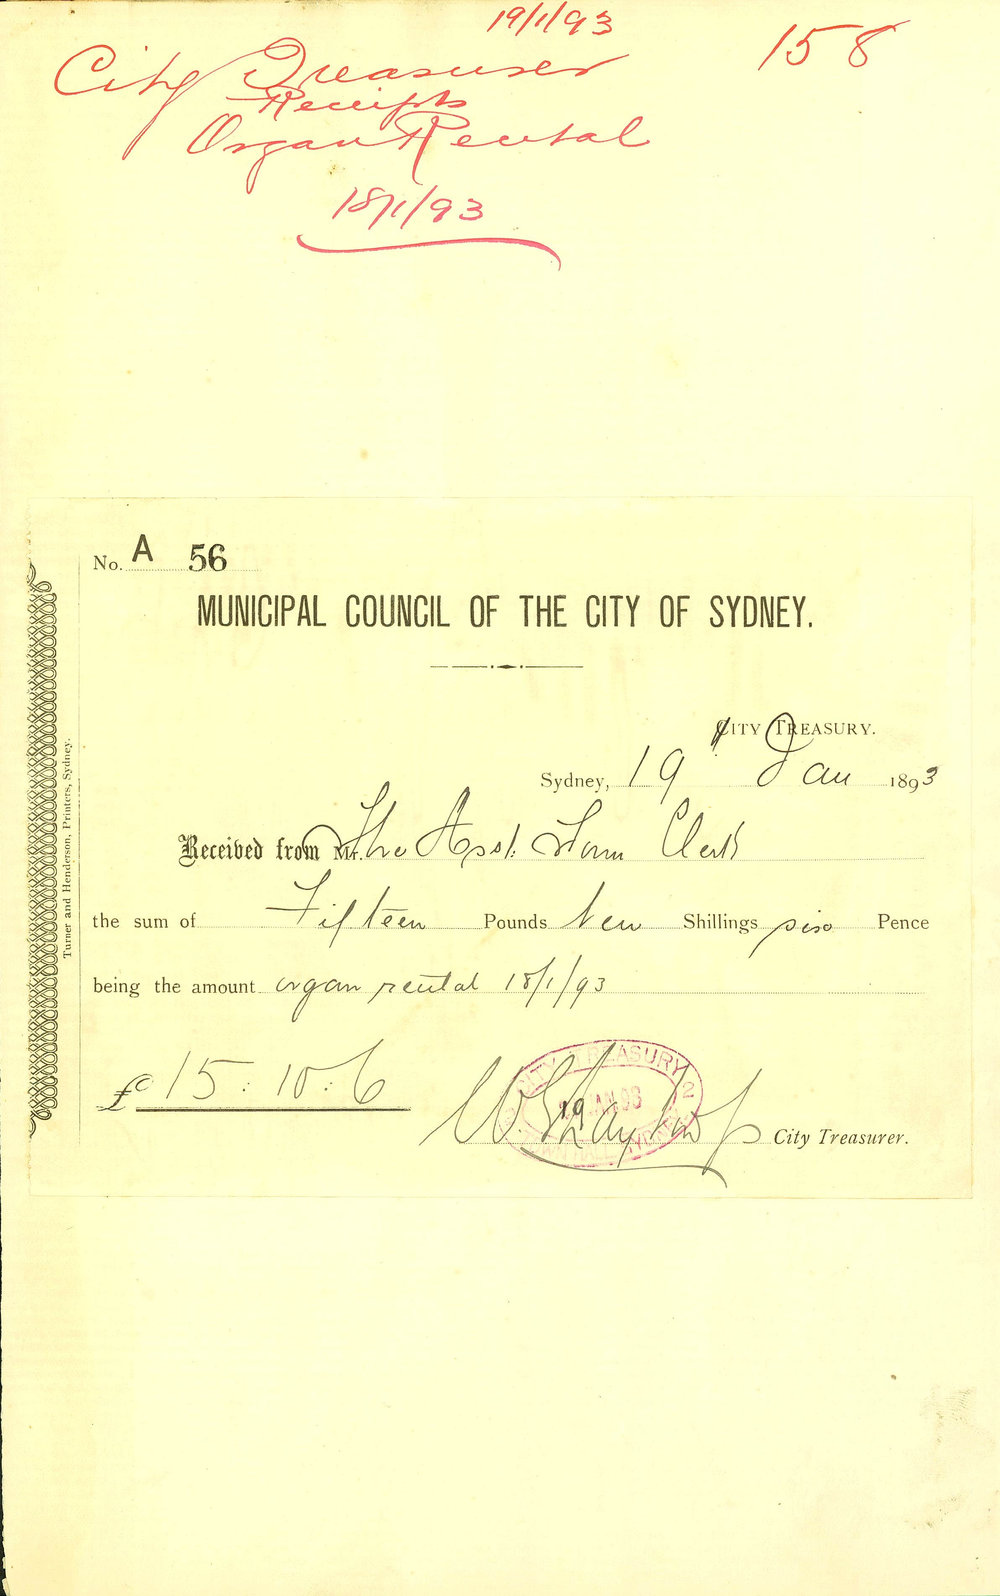 19/1/93
158
City Treasurer
Receipts
Organ Rental
18/1/93
No. A 56
MUNICIPAL COUNCIL OF THE CITY OF SYDNEY.
CITY TREASURY.
Sydney, 19 Jan 1893
Received from Mr. The Asst. Town Clerk
the sum of Fifteen Pounds ten Shillings six Pence
being the amount organ rental 18/1/93
£ 15: 10: 6
City Treasurer.
CITY TREASURY
19 JAN 93
2
TOWN HALL SYDNEY
Turner and Henderson, Printers, Sydney.